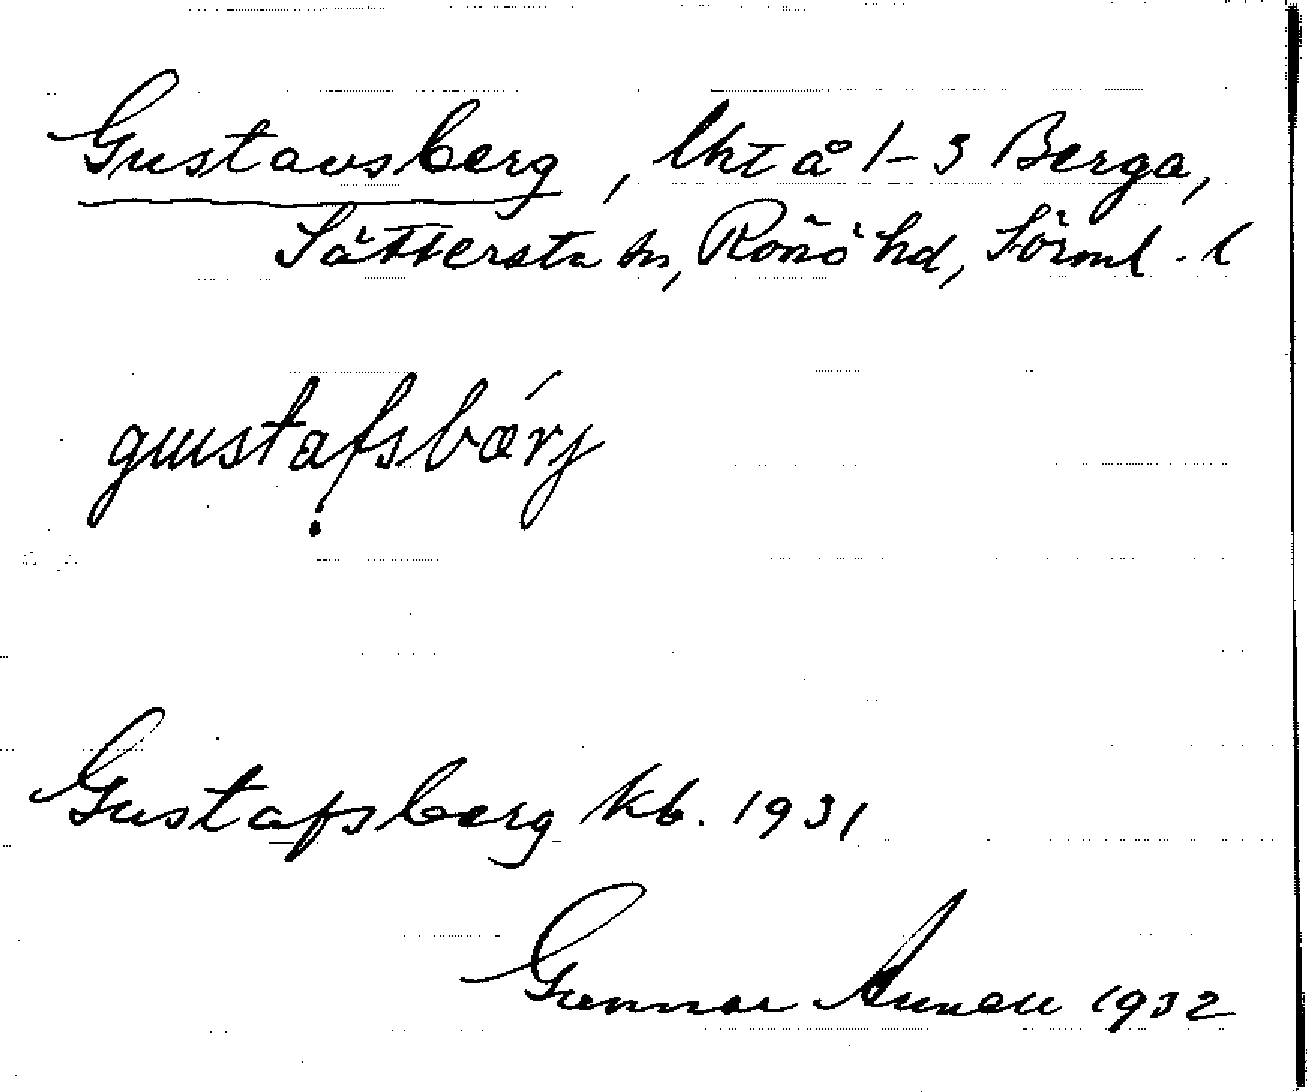 Gustavsberg, lht å 1-3 Berga,
Sättersta sn, Rönö hd, Sörml. l
gustafsbärj
Gustafsberg kb. 1931
Gunnar 1932